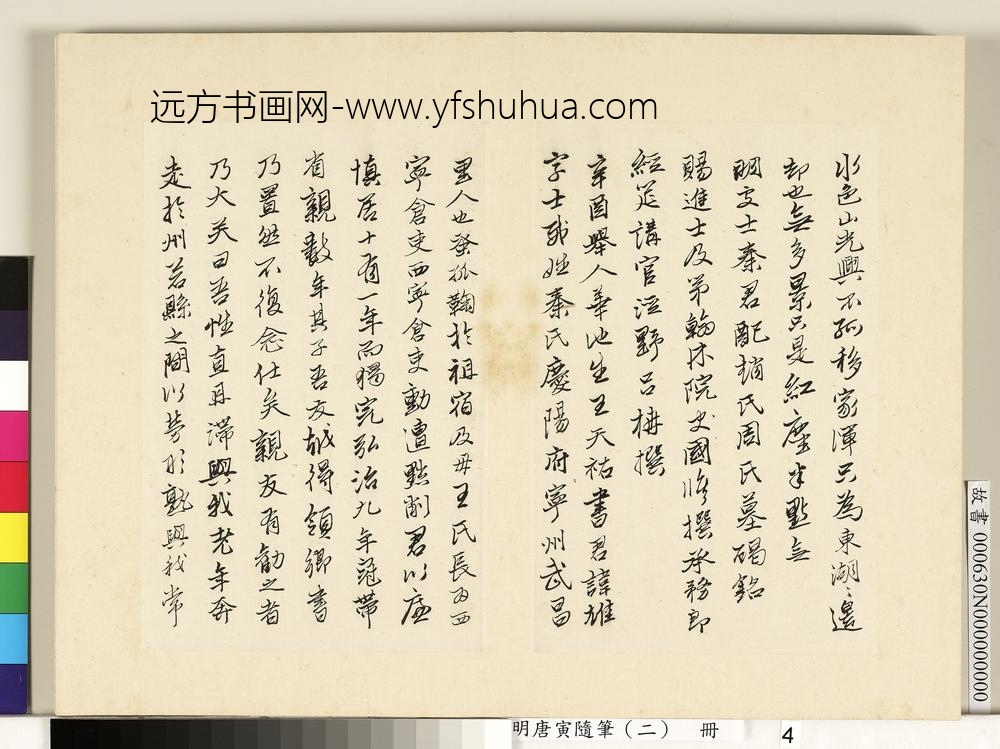 远方书画网-www.yfshuhua.com
水色山光興不孤移家渾只為東湖湖邊
却也無多景只是紅塵半點無
明處士秦君配趙氏周氏墓碣銘
賜進士及第翰林院史國修撰承務郎
經筵講官涇野呂柟撰
辛酉舉人華池生王天祐書君諱雄
字士威姓秦氏慶陽府寧州武昌
里人也蚤孤鞠於祖宿及毋王氏長為西
寧倉吏西寧倉吏動遭黜削君以廉
慎居十有一年而獨完弘治九年冠帶
省親數年其子吾友鉞得領鄉書
乃置然不復念仕矣親友有勸之者
乃大笑曰吾性直且滯與我老年奔
走於州若縣之間以勞形孰與我常
故書 000630N000000000
明唐寅隨筆（二） 冊
4